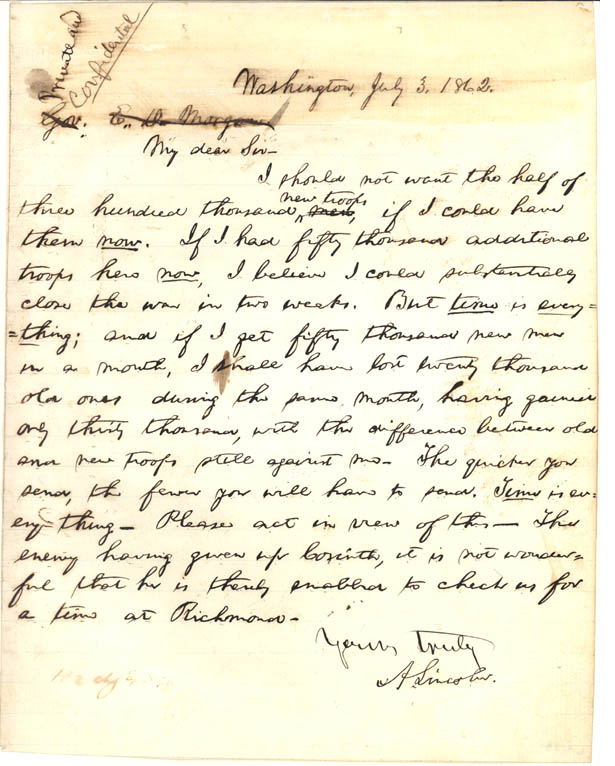 Private and
Confidential
Washington, July 3, 1862.
Gov. E. D. Morgan
My dear Sir—
I should not want the half of
new troops
three hundred thousand men, if I could have
them now. If I had fifty thousand additional
troops here now, I believe I could substantially
close the war in two weeks. But time is every=
=thing; and if I get fifty thousand new men
in a month, I shall have lost twenty thousand
old ones during the same month, having gained
only thirty thousand, with the difference between old
and new troops still against me— The quicker you
send, the fewer you will have to send. Time is ev=
ery thing— Please act in view of this— The
enemy having given up Corinth, it is not wonder=
ful that he is thereby enabled to check us for
a time at Richmond—
Yours truly
A. Lincoln.